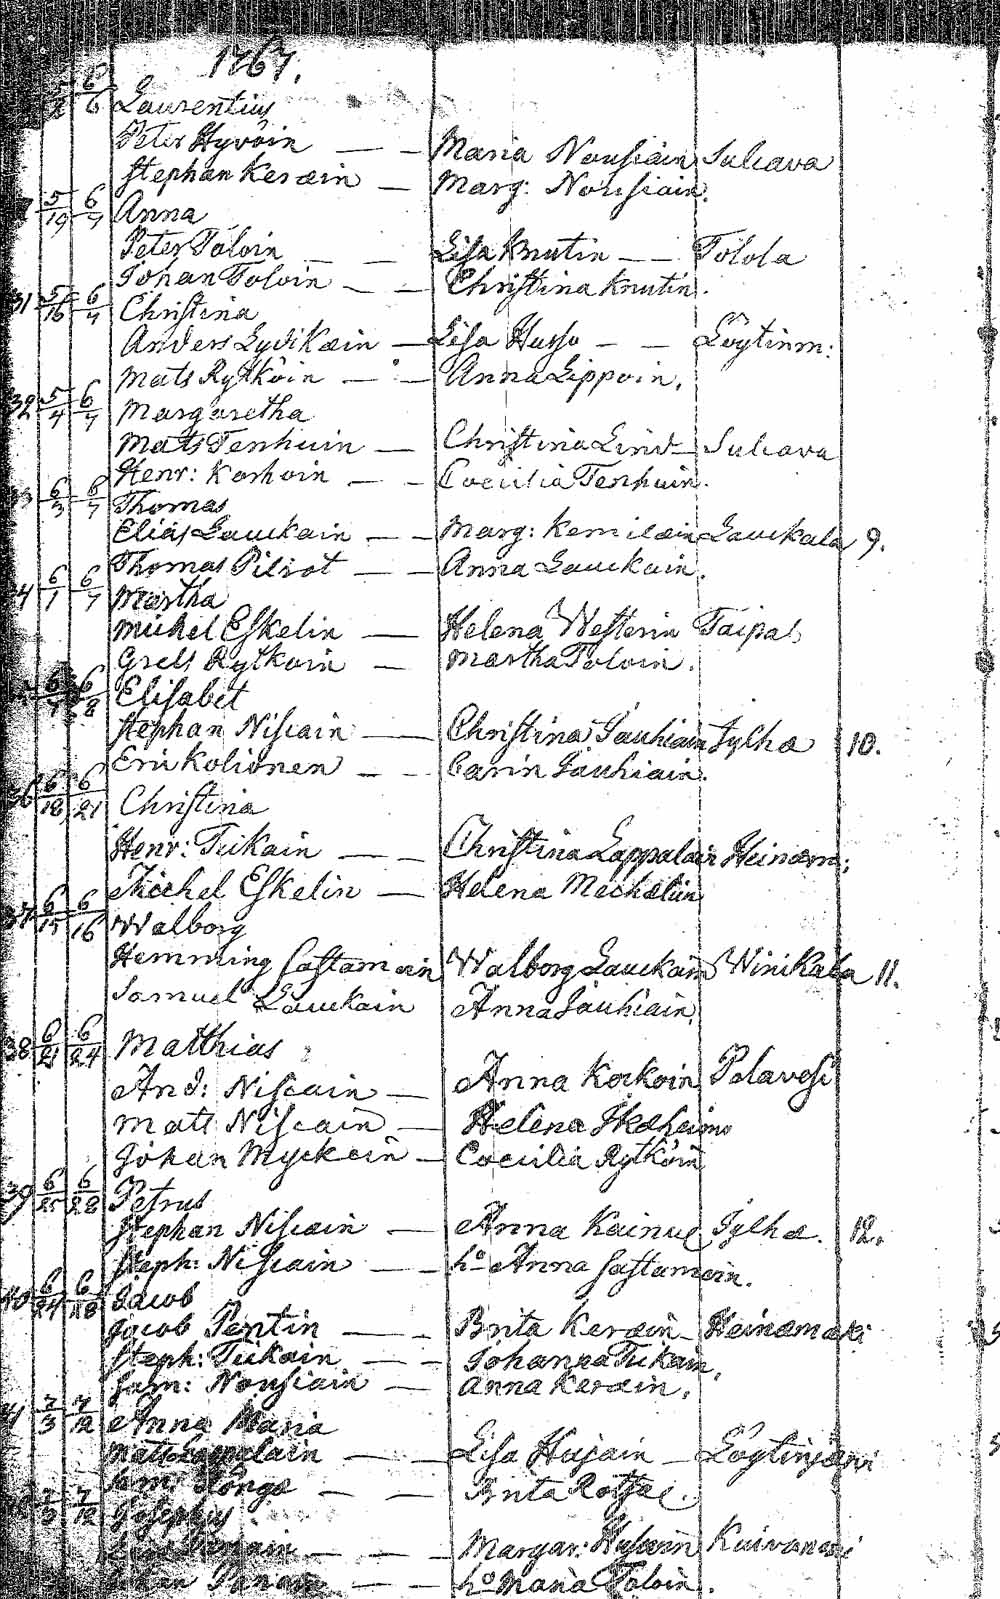 1767.
5/2 6/6 Laurentius
Peter Hyvöin — — Maria Nousiain Sulcava
Stephan Keræin — Marg: Nousiain.
5/19 6/7 Anna
Peter Toloin — — Lisa Knutin — — Tolola
Johan Toloin — — Christina Knutin.
31 5/16 6/7 Christina
Anders Lydikæin — Lisa Husso — — Löytinm:
Mats Rytköin — — Anna Lippoin.
32 5/4 6/7 Margaretha
Mats Tenhuin — Christina Lind — Sulcava
Henr: Korhoin — — Coecilia Tenhuin.
33 6/3 6/7 Thomas
Elias Lauckain — — Marg: Kemilæin Lauckala 9.
Thomas Pilrot — — Anna Lauckain.
34 6/1 6/7 Martha
Michel Eskelin — Helena Westerin Taipal
Grels Rytkoin — Martha Toloin.
6/7 6/8 Elisabet
Stephan Niscain — Christina Jauhiain Jylhä 10.
Eric Kolionen — — Carin Jauhiain.
36 6/18 6/21 Christina
Henr: Tickain — — Christina Lappalain Heinäm:
Michel Eskelin — Helena Mechælin
37 6/15 6/16 Walborg
Hemming Sastamoin Walborg Lauckain Winikala 11.
Samuel Lauckain Anna Jauhiain.
38 6/21 6/24 Matthias
And: Niscain — Anna Kockoin Palavesi
Mats Niscain — Helena Ikæheimo
Johan Myckein — Coecilia Rytköin
39 6/25 6/28 Petrus
Stephan Niscain — Anna Kainul Jylhä. 12.
Steph: Niscain — — ho Anna Sastamoin.
40 6/24 6/28 Jacob
Jacob Pentin — — Brita Keræin — Heinämäki
Steph: Tickain — — Johanna Tickain.
Sam: Nousiain — Anna Keræin.
41 7/3 7/12 Anna Maria
Mats Lappalain — Lisa Husain — Löytinjärvi
Sam: Kongs — — Brita Rotsal.
7/3 7/12 Josephus
— — Margar: Husain Kuivaniemi
Johan — — ho Maria Toloin.